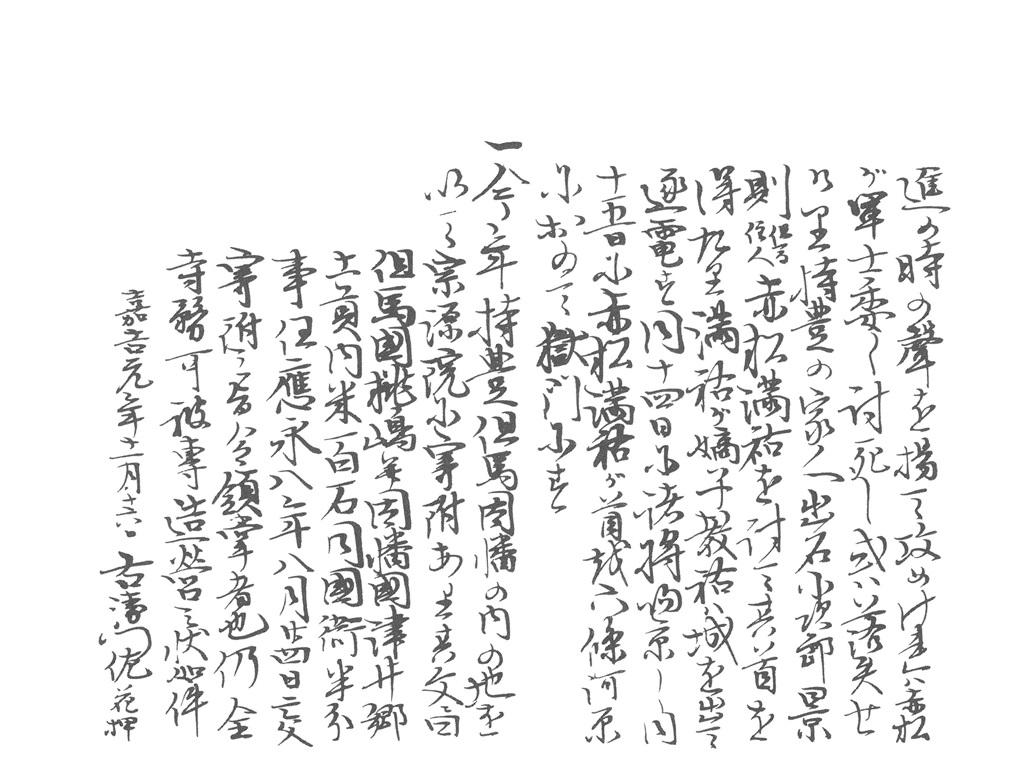 進の時の聲を揚て攻めけれハ赤松
が軍士悉く討死し或ハ落失せ
ける里持豊の家人出石小次郎田景
則但馬住人赤松満祐を討て其首を
得たり満祐が嫡子教祐ハ城を出て
逐電す同十四日に諸将帰京し同
十五日に赤松満祐が首越六條河原
にかのて獄門にす
一今年持豊但馬因幡の内の地を
以て宗源院に寄附あり其文曰
但馬國桃嶋并因幡國津井郷
士貢内米一百石同國衙半分
事任應永八年八月廿四日之文
寄附之旨令領掌者也仍全
寺務可被專造營之状如件
嘉吉元年十一月十六日右衛門佐花押